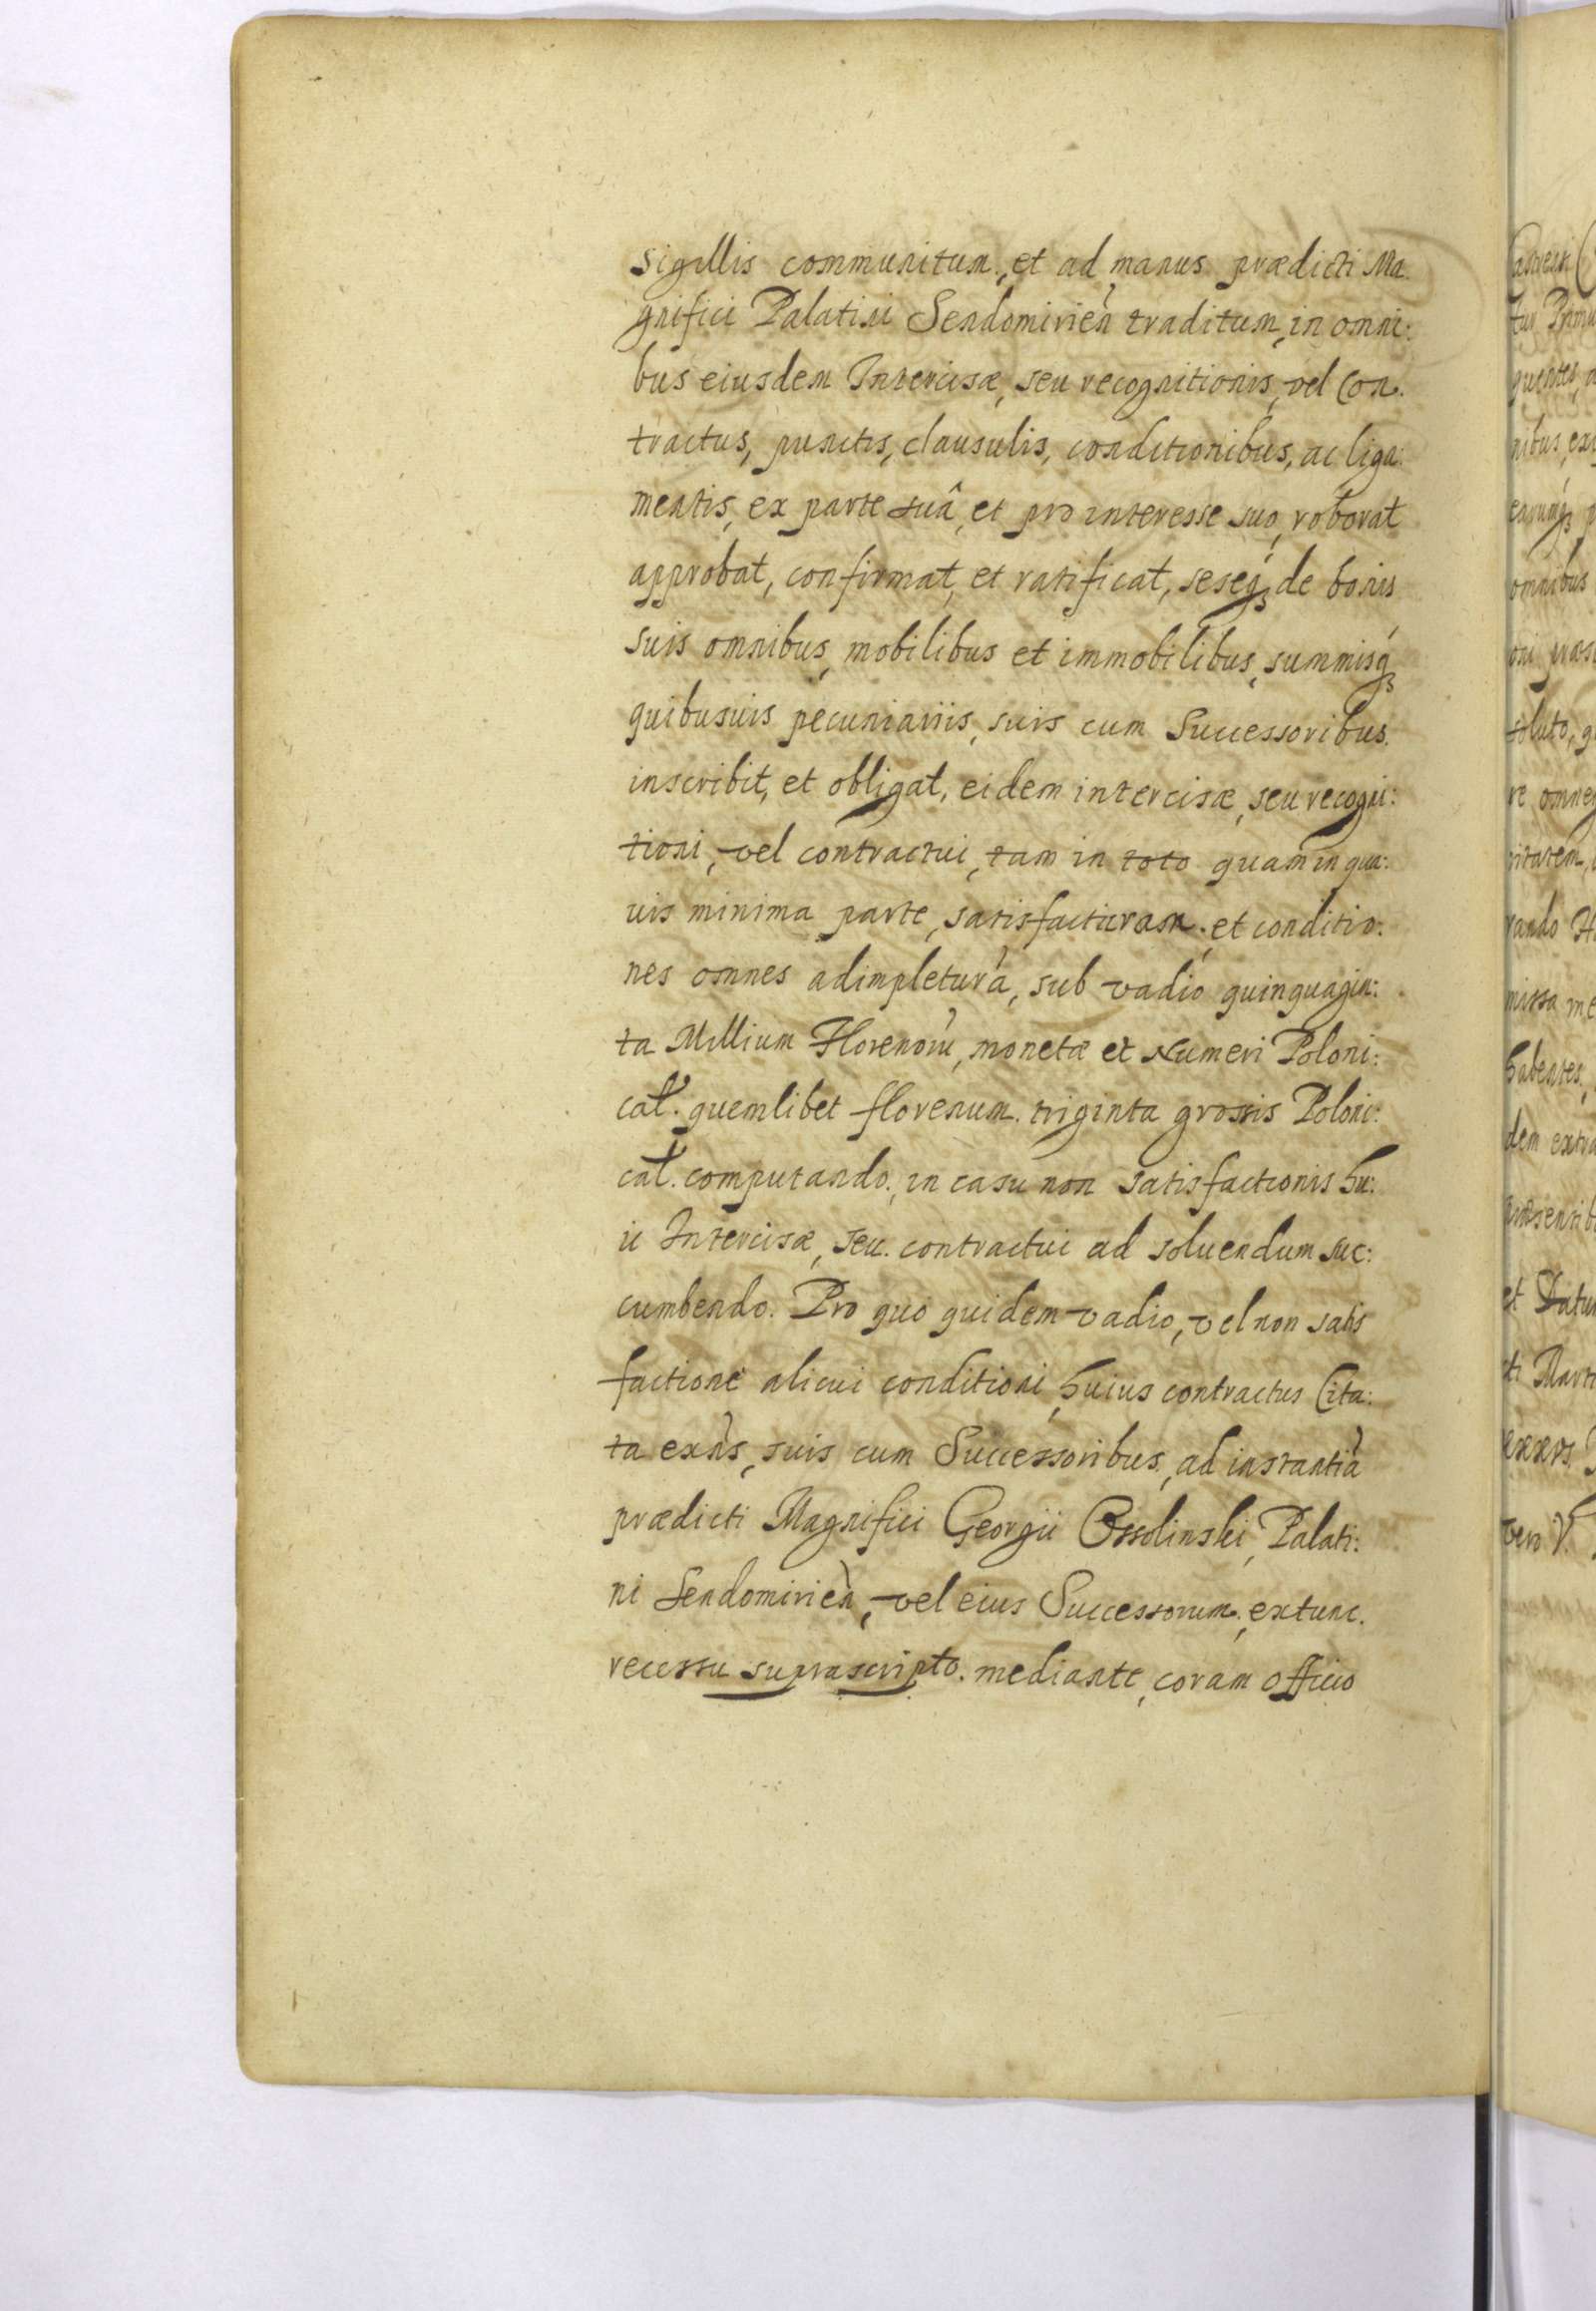 sigillis communitum, et ad manus prædicti Ma.
gnifici Palatini Sendomirien̄ traditum, in omni:
bus eiusdem Intercisæ, seu recognitionis, vel Con.
tractus, punctis, clausulis, conditionibus, ac liga:
mentis, ex parte suâ, et pro interesse suo, roborat
approbat, confirmat, et ratificat, seseq₃ de bonis
suis omnibus, mobilibus et immobilibus, summisq₃
quibusuis pecuniariis, suis cum Successoribus.
inscribit, et obligat, eidem intercisæ, seu recogni:
tioni, vel contractui, tam in toto quam in qua:
uis minima parte, satisfacturam. et conditio.
nes omnes adimpleturā, sub vadio quinquagin:
ta Millium Florenorū, monetæ et Numeri Poloni:
cal. quemlibet florenum. triginta grossis Poloni:
cal. computando, in casu non satisfactionis hu:
ic Intercisæ, seu. contractui ad soluendum suc:
cumbendo. Pro quo quidem vadio, vel non satis
factione alicui conditioni, huius contractus Cita:
ta exn̄s, suis cum Successoribus, ad instantiā
prædicti Magnifici Georgii Ossolinski, Palati:
ni Sendomirien̄, vel eius Successorum, extunc.
recessu suprascripto. mediante, coram officio